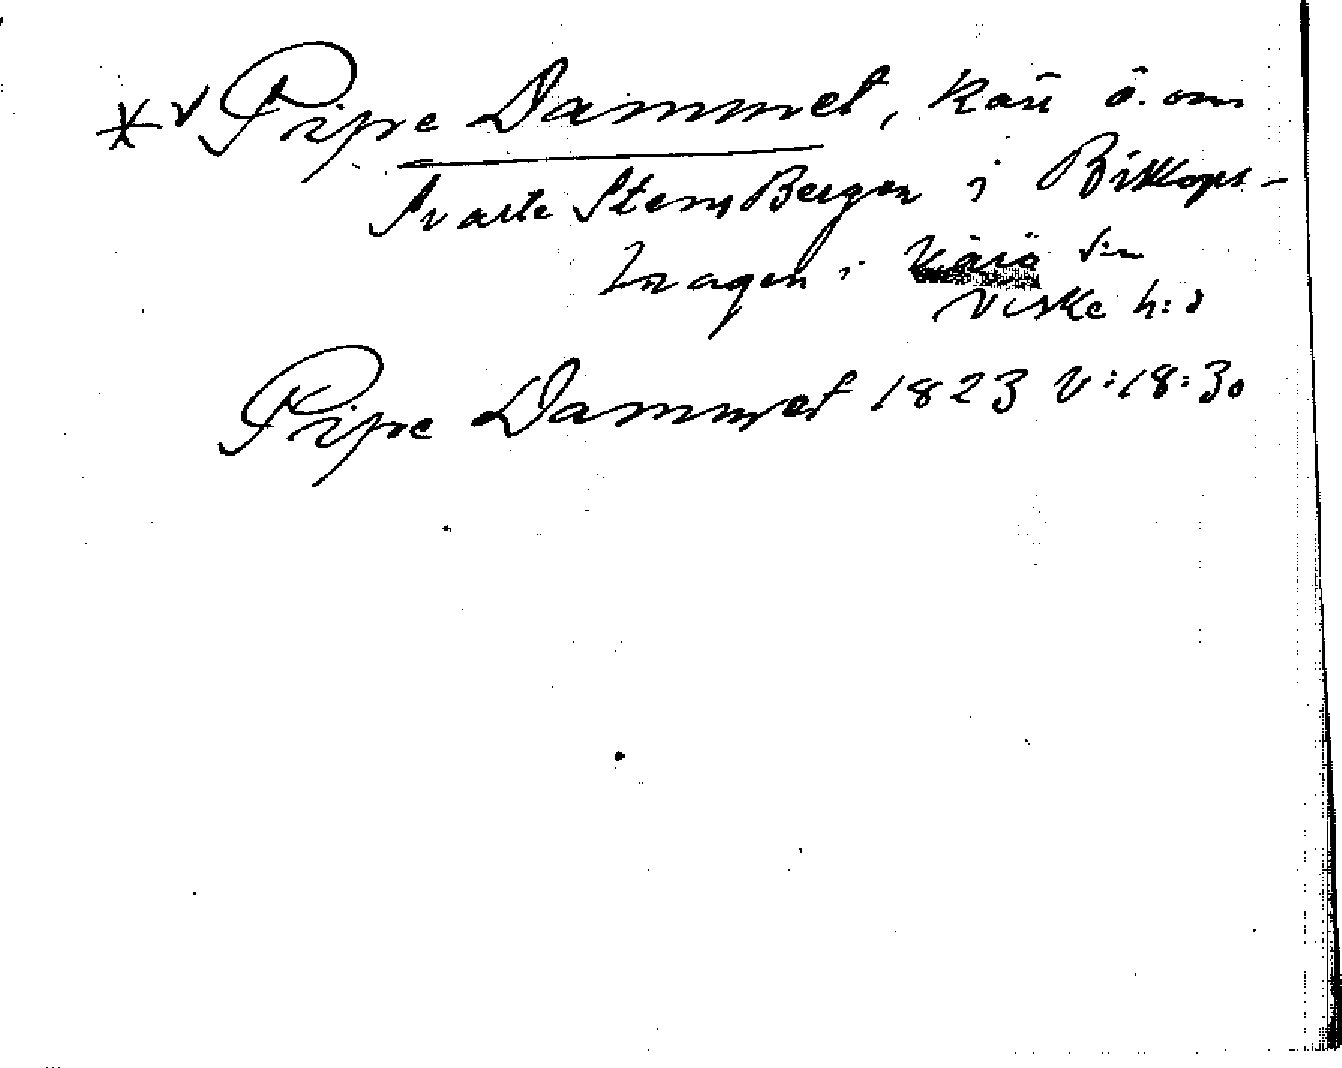 * v Pipe Dammet, kärr ö. om
Svarte Stens Bergen i Biskops-
hagen i Värö sn
Viske h:d
Pipe Dammet 1823 V:18:30